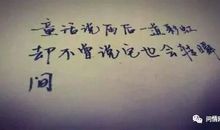 童话说雨后一道彩虹
却不曾说它也会转瞬
间
@问情